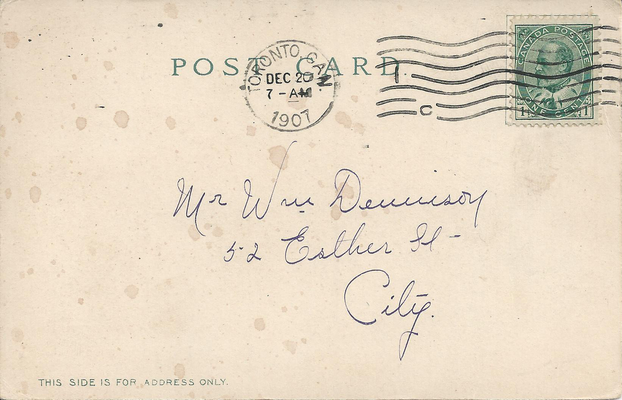 POST CARD
TORONTO, CAN.
DEC 20
7 - AM
1907
1
C
CANADA POSTAGE
ONE CENT
1 1
Mr Wm Dennison
52 Esther St -
City.
THIS SIDE IS FOR ADDRESS ONLY.